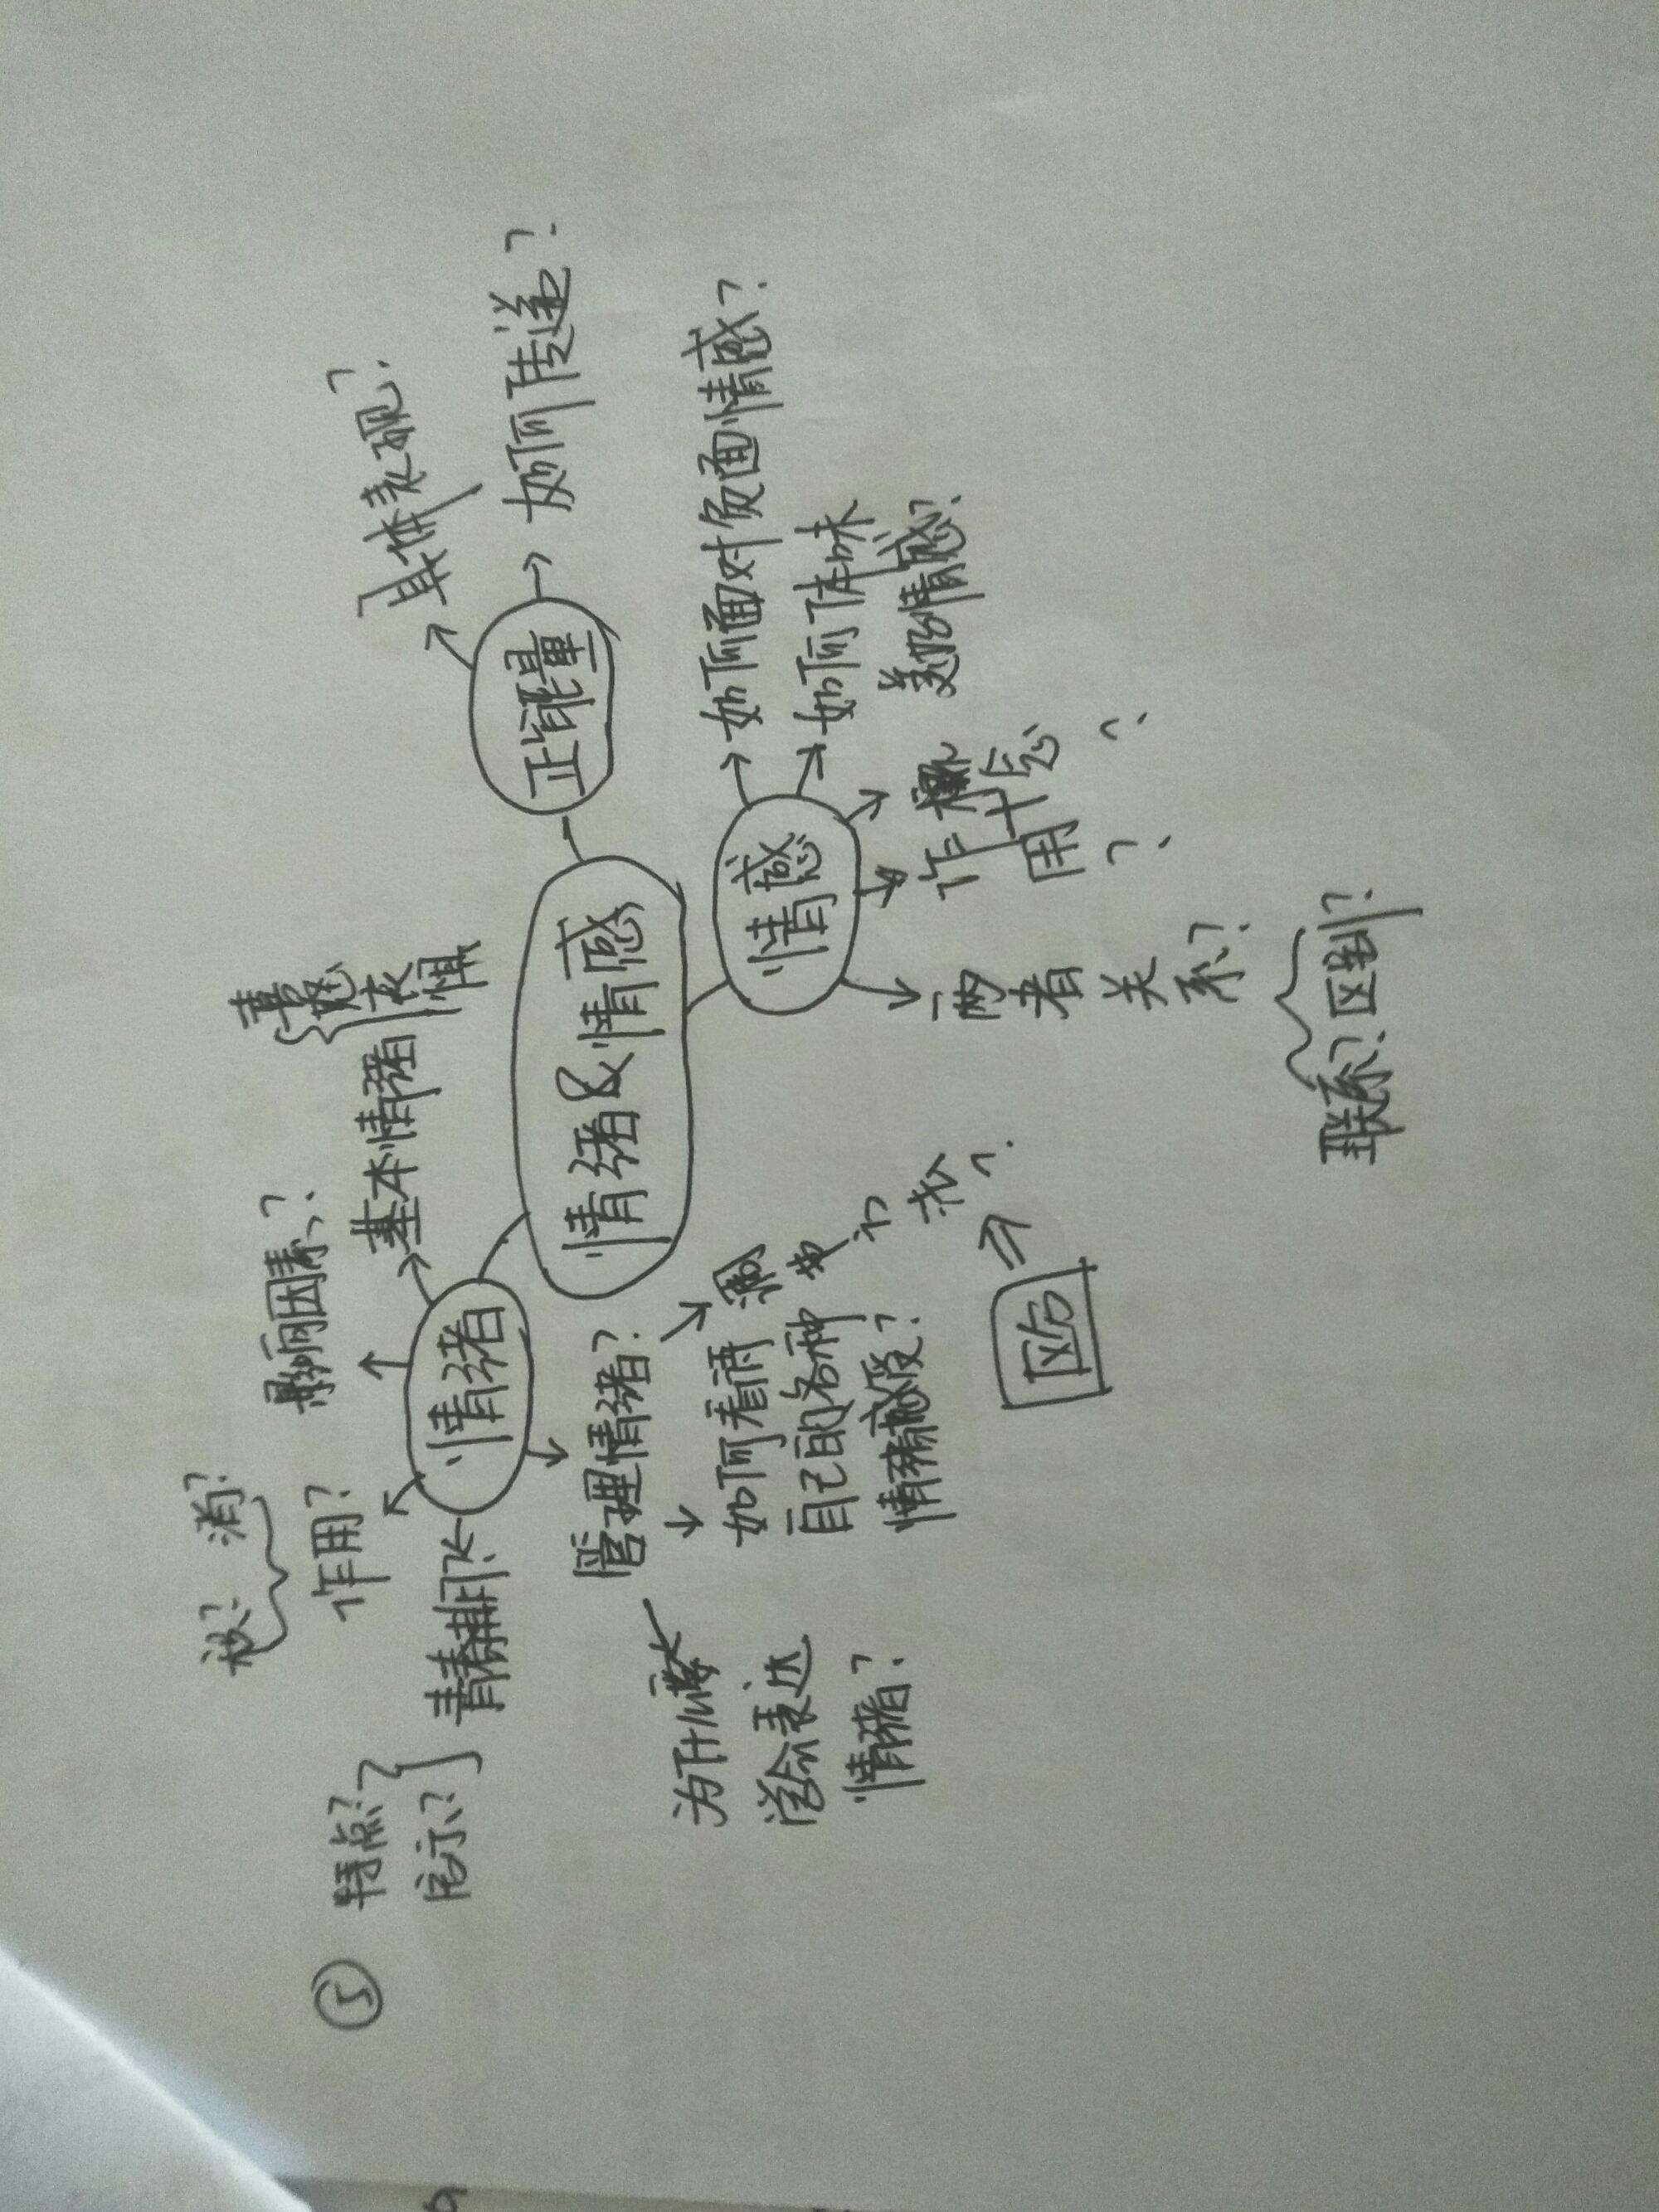 ⑤
特点?
启示?
青春期
积? 消?
作用?
影响因素?
基本情绪
喜
怒
哀
惧
情绪
管理情绪?
为什么要
学会表达
情绪?
如何看待
自己的各种
情绪感受?
调节方法?
区分
情绪&情感
正能量
具体表现?
如何传递?
情感
如何面对负面情感?
如何体味
美好情感?
概念?
作用?
两者关系?
联系? 区别?